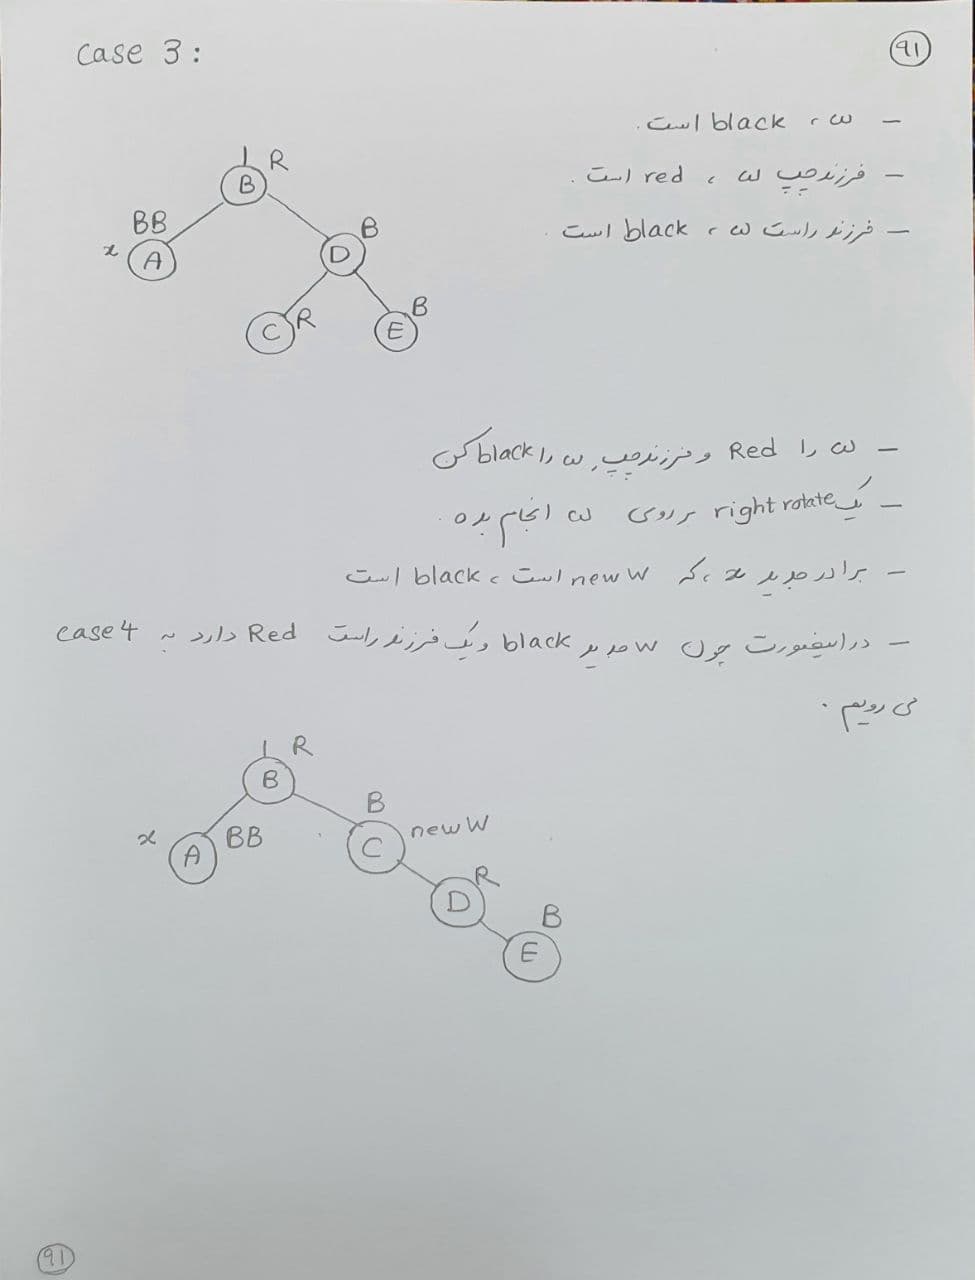 case 3 :
91
- w ، black است.
- فرزند چپ w ، red است .
- فرزند راست w ، black است .
R
B
BB
B
x A
D
C R
B
E
- w را Red و فرزند چپ w را black کن
- یک right rotate بر روی w انجام بده .
- برادر جدید x ، که new w است ، black است
- در اینصورت چون w جدید black و یک فرزند راست Red دارد به case 4
می رویم .
R
B
B
new w
x A BB
C
R
D
B
E
91